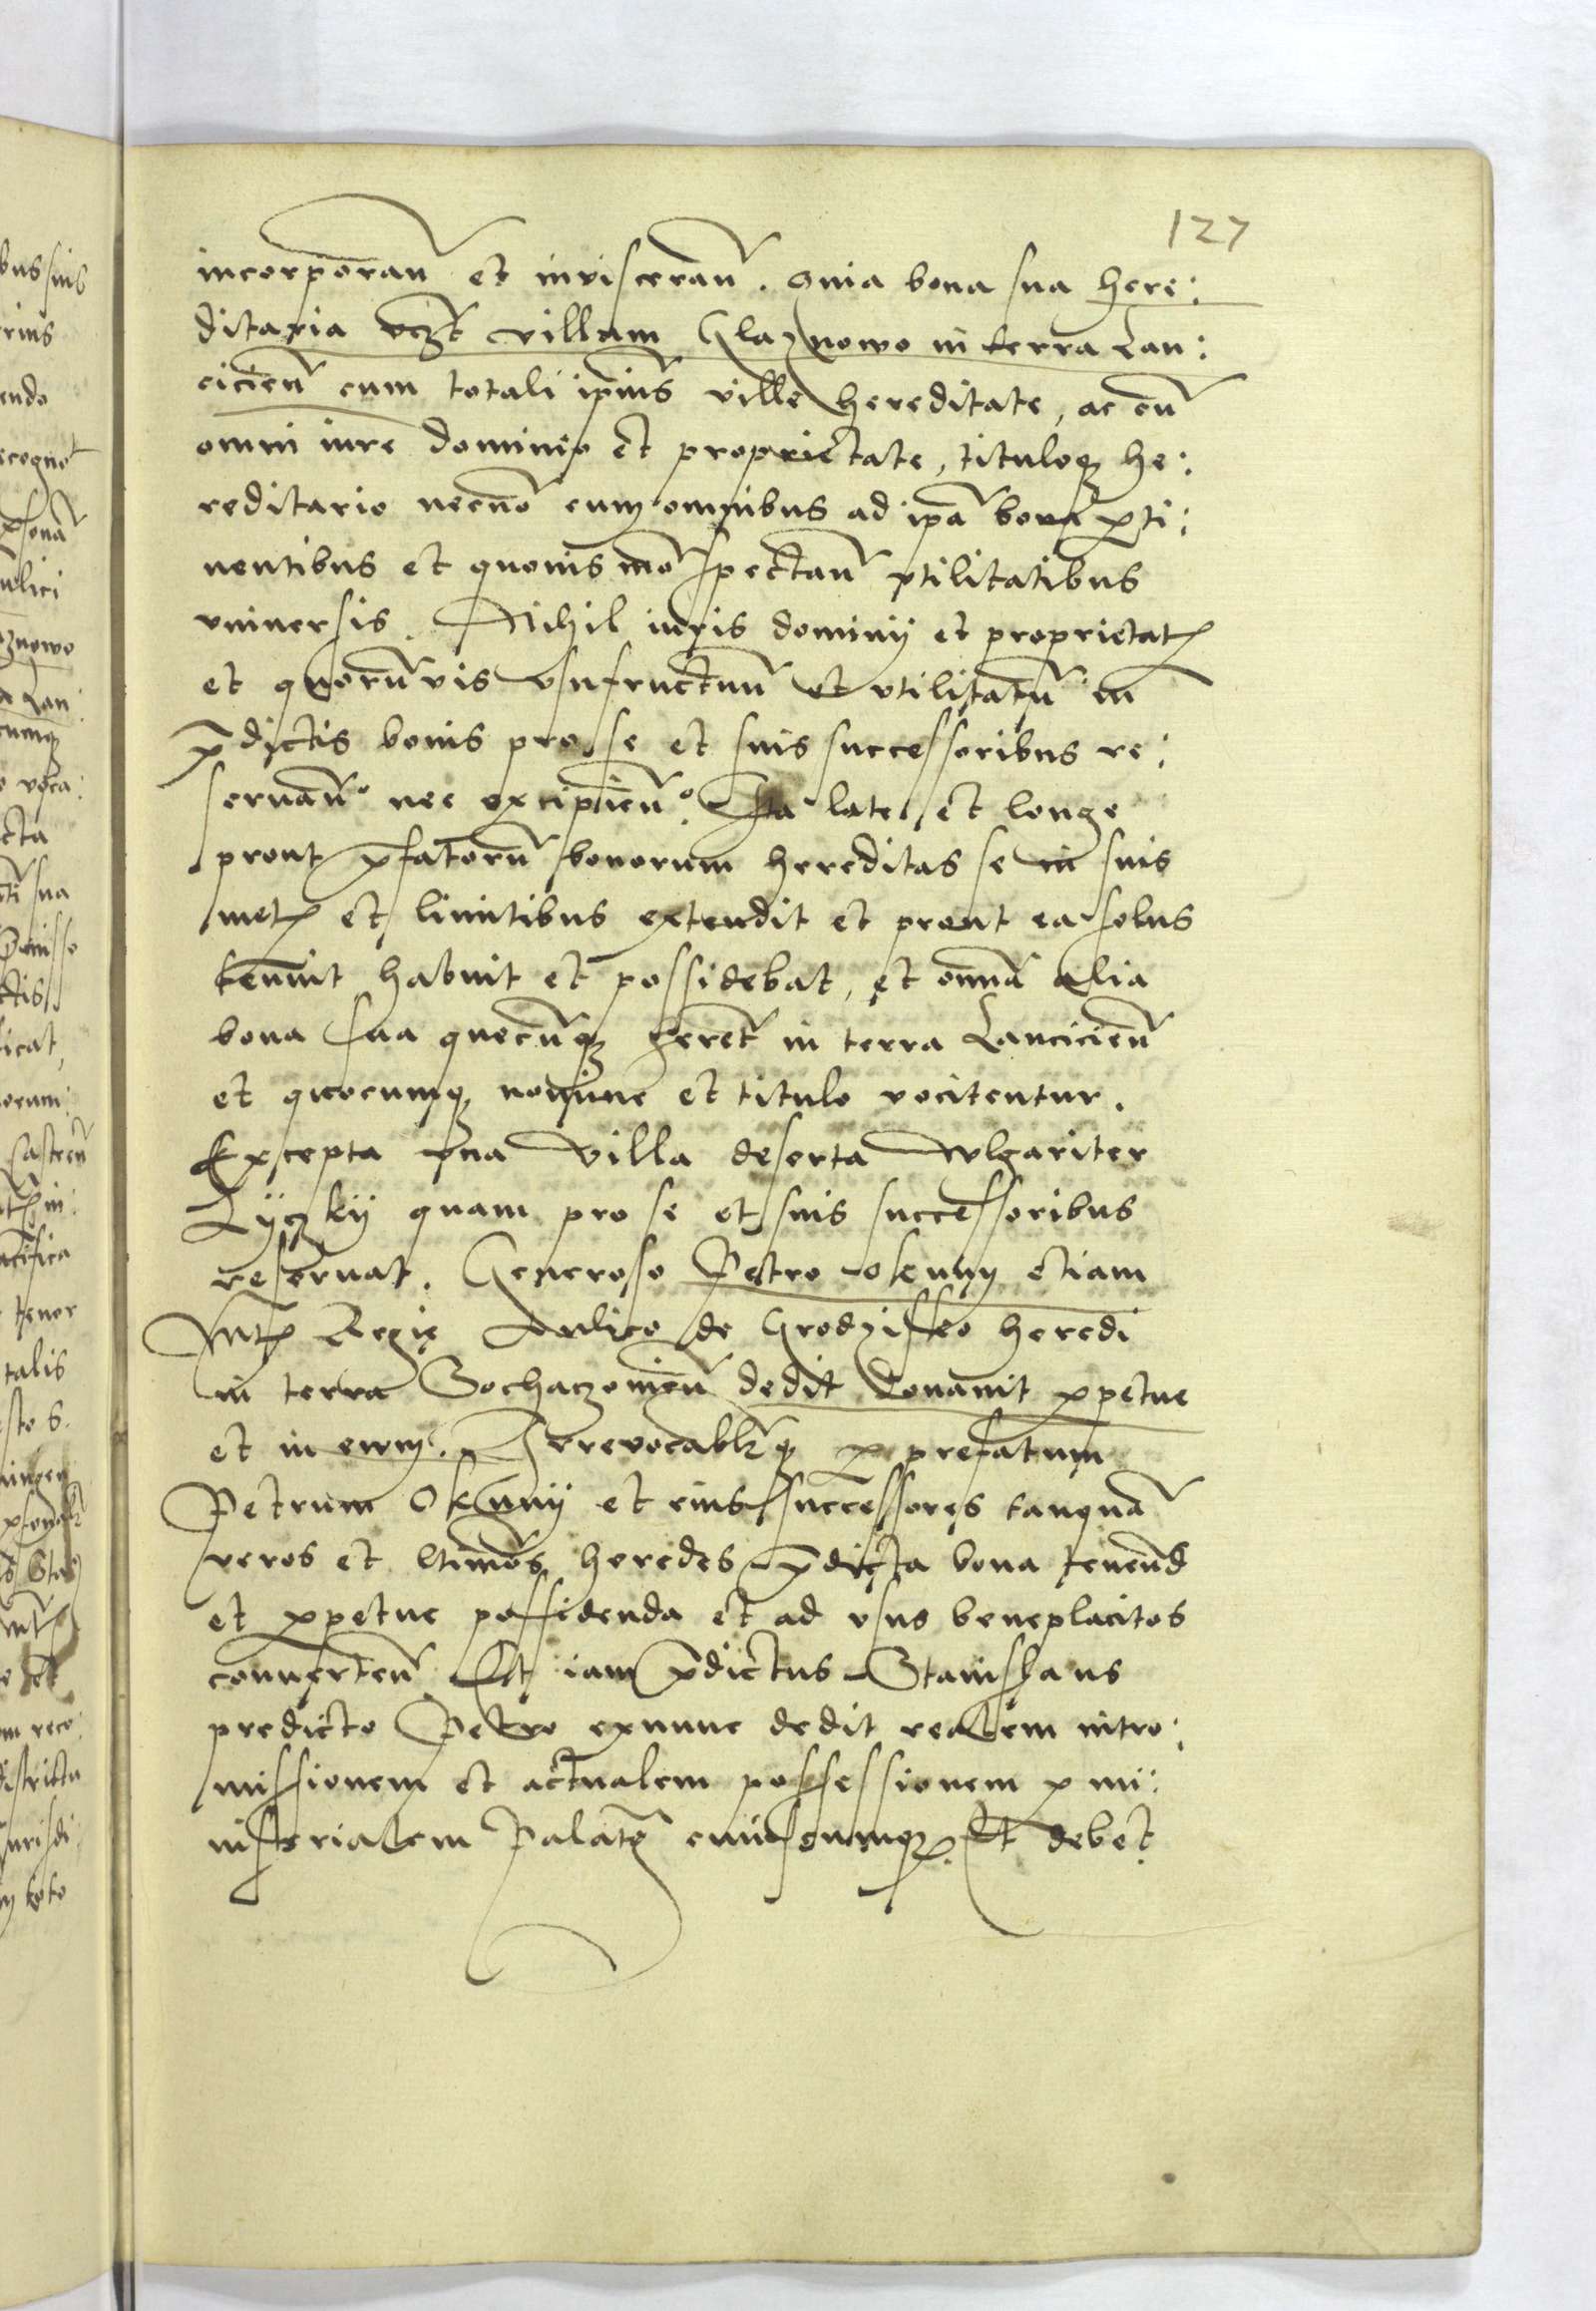 127
incorporan̄ et inisceran̄. Oīnia bona sua here:
ditaria vczt villam Glaznowo in terra Lan:
cicien̄ cum totali ipīus ville hereditate, ac cū
omni iure dominio et proprietate, tituloq he:
reditario necnō cum omnibus ad ipā bona ꝑti:
nentibus et quouis mō spectan̄ vtilitatibus
vniuersis. Nihil iuris dominij et proprietatꝭ
et quorūvis vsufructuū et vtilitatū in
p̄dictis bonis pro se et suis successoribus re:
seruan̄º nec excipien̄º. Ita late et longe
prout p̄fatorū bonorum hereditas se in suis
metꝭ et limitibus extendit et prout ea solus
tenuit habuit et possidebat, et omnā alia
bona sua quecūqꝫ herēt in terra Lancicien̄
et quocumqꝫ nomine et titulo vocitentur.
Excepta vna villa deserta wlgariter
Lyczkij quam pro se et suis successoribus
reseruat. Generoso Petro Okunÿ etiam
Mtꝭ Regię Aulico de Grodzisko heredi
in terra Sochaczouien̄ dedit donauit ꝑpetue
et in ewm. Irreuocablrqꝫ ꝑ prefatum
Petrum Okunij et eius successores tanquā
veros et ltimōs heredes p̄dicta bona tenend
et ꝑpetue possidenda et ad vsus beneplacitos
conuerten̄ Et iam p̄dictus Stanislaus
predicto Petro exnunc dedit realem intro:
missionem et actualem possessionem ꝑ mi:
nisterialem Palatꝭ cuiuscumqꝫ. Et debet